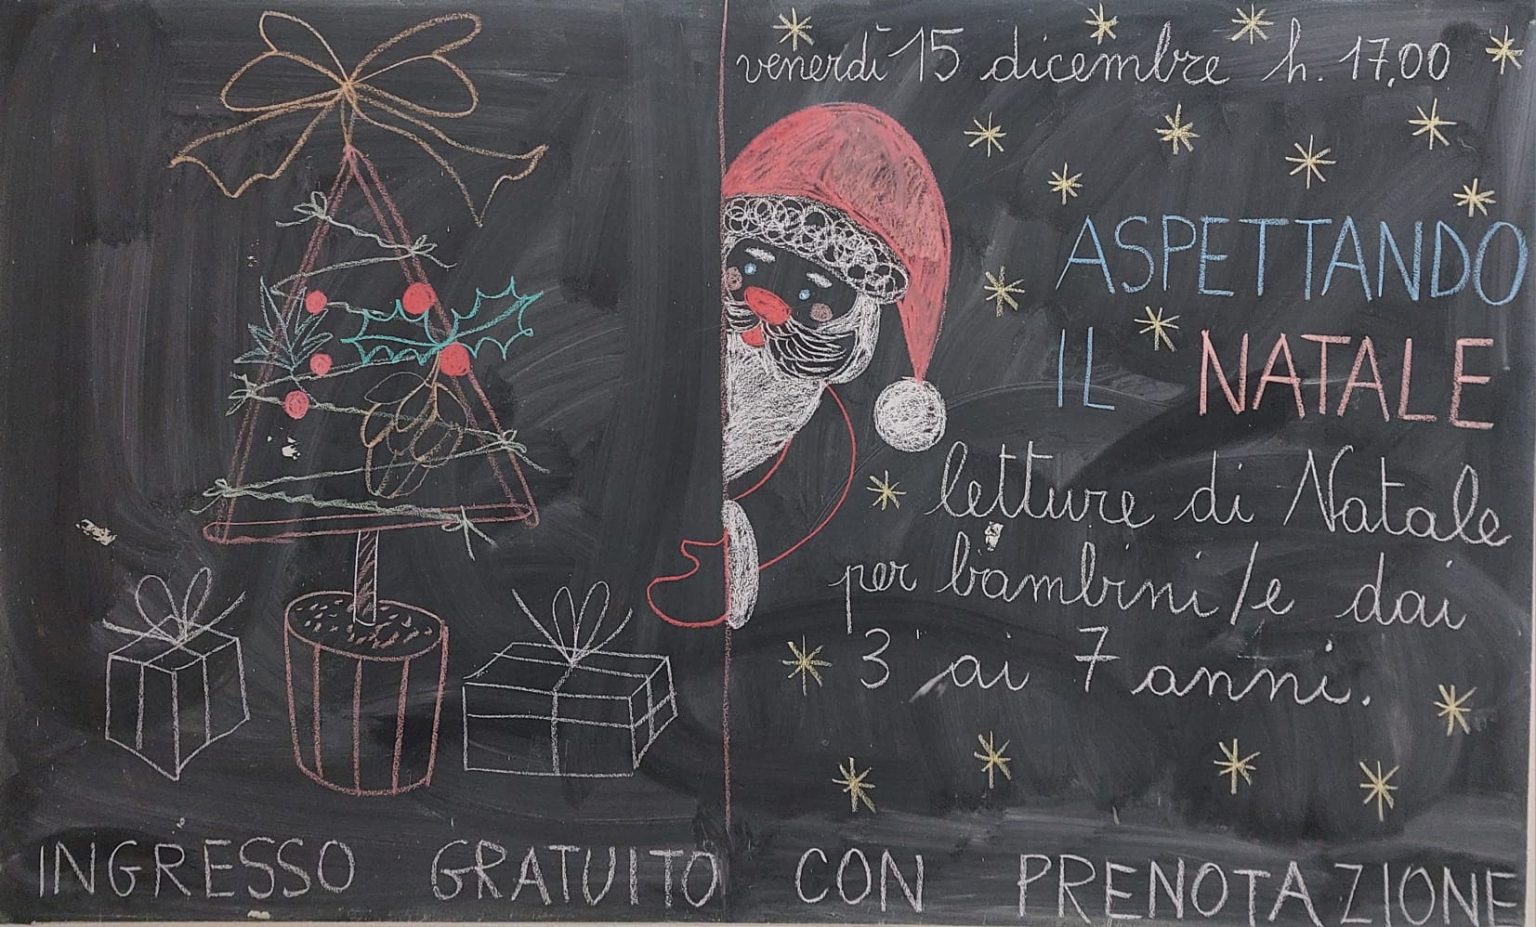 venerdì 15 dicembre h. 17,00
ASPETTANDO
IL NATALE
letture di Natale
per bambini/e dai
3 ai 7 anni.
INGRESSO GRATUITO CON PRENOTAZIONE